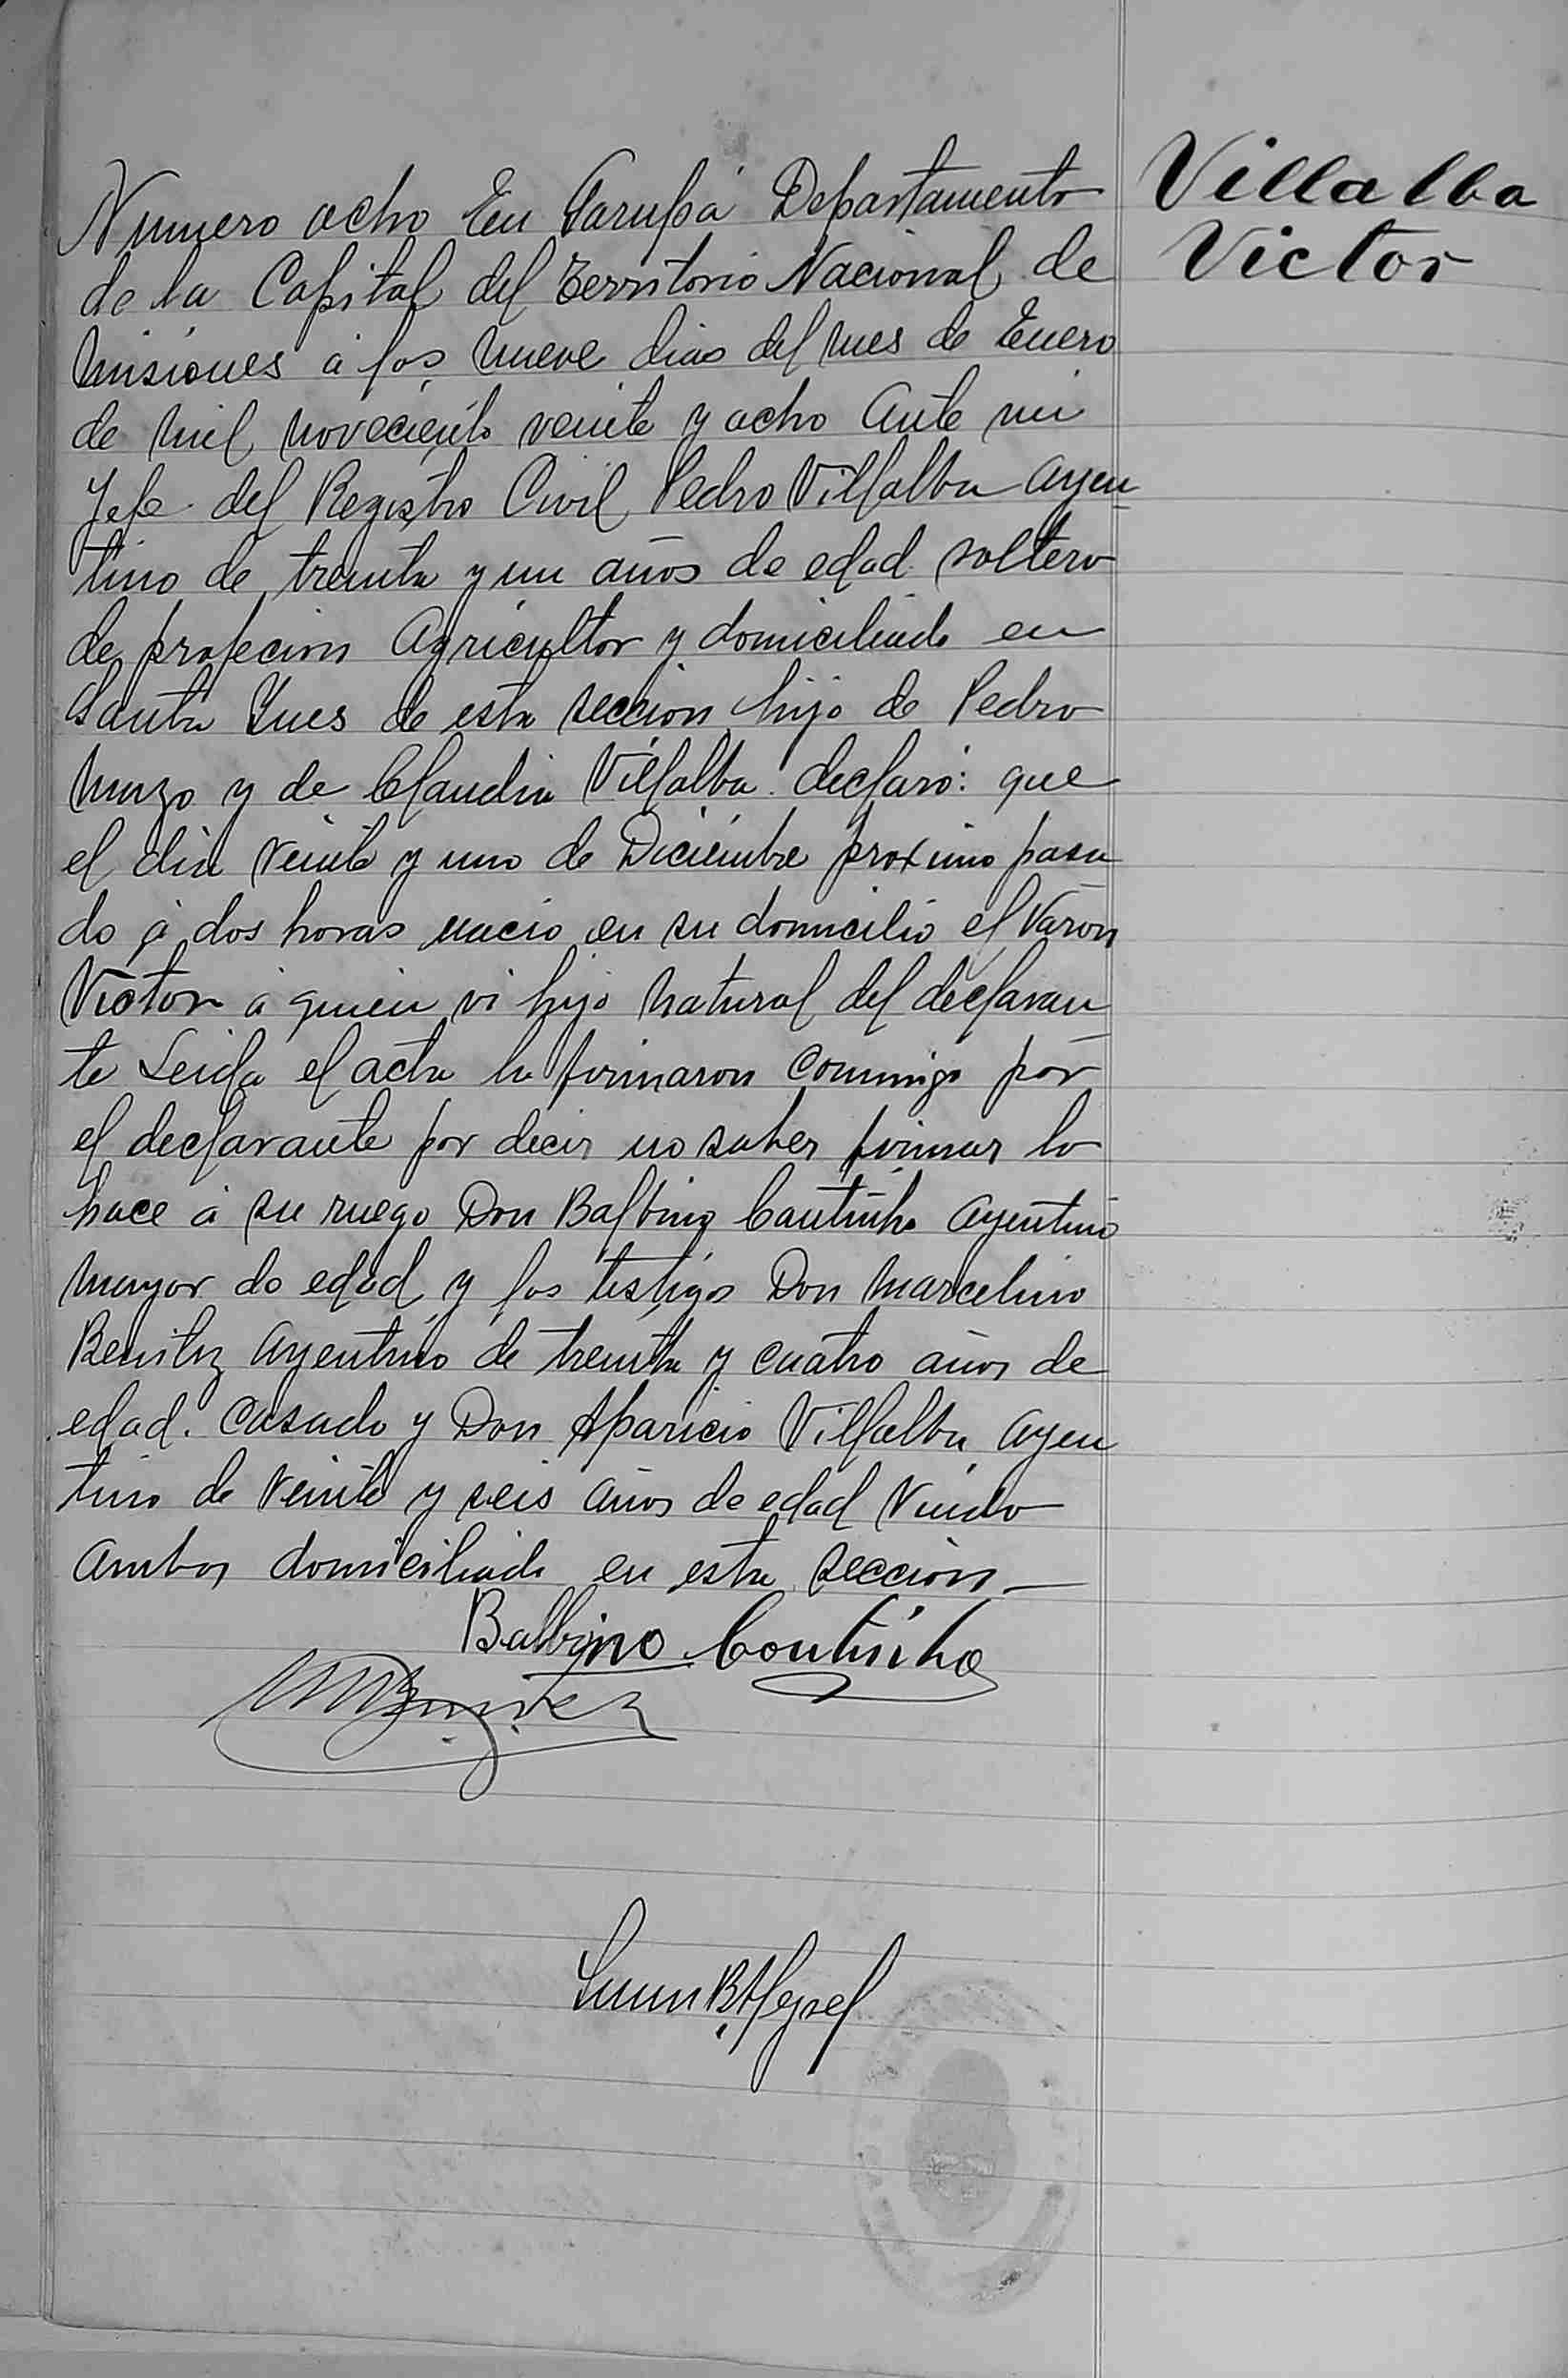 Villalba
Victor
Numero ocho En Garupá Departamento
de la Capital del Territorio Nacional de
Misiones á los nueve dias del mes de Enero
de mil noveciento veinte y ocho Ante mi
Jefe del Registro Civil Pedro Villalba argen
tino de treinta y un años de edad soltero
de profecion Agricultor y domiciliado en
Santa Ynes de esta seccion hijo de Pedro
y de Claudia Villalba declaró: que
el dia veinte y uno de Diciembre proximo pasa
do á dos horas nacio en su domicilio el Varon
Victor á quien vi hijo natural del declaran
te Leida el acta la firmaron conmigo por
el declarante por decir no saber firmar lo
hace á su ruego Don Balbino Cautinho argentino
mayor de edad y los testigos Don Marcelino
Benitez argentino de treinta y cuatro años de
edad. Casado y Don Aparicio Villalba argen
tino de veinte y seis años de edad Viudo
Ambos domiciliado en esta seccion—
Balbino Coutinho